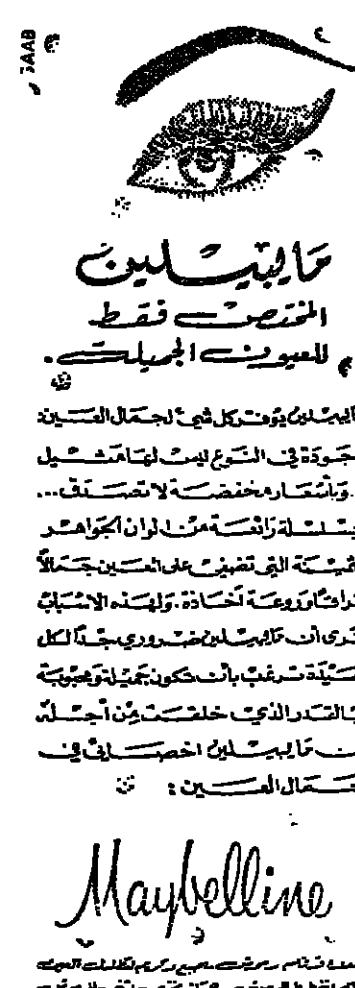 BAAB
مايبيللين
المختصت فقط
للعيون الجميلة.
مايبيللين يوفر كل شيء لجمال العين:
جودة في النوع ليس لها مثيل
وبأسعار مخفضة لا تصدق...
بسلسلة رائعة من ألوان الجواهر
الثمينة التي تضفي على العين جمالاً
براقاً وروعة أخاذة. ولهذه الاسباب
ترى أن مايبيللين ضروري جداً لكل
سيدة ترغب بأن تكون جميلة ومحبوبة
بالقدر الذي خلقت من أجله
مايبيللين اخصائي في
جمال العين:
Maybelline